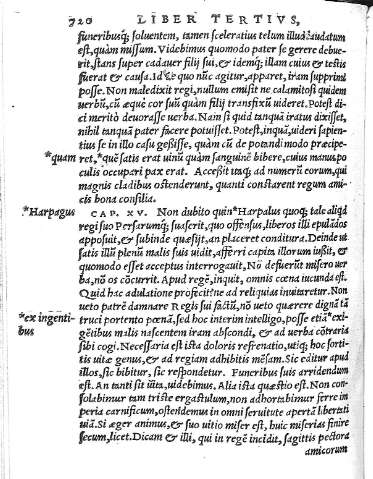 320 LIBER TERTIVS,
funeribusq́; soluentem, tamen sceleratius telum illud laudatum
est, quàm missum. Videbimus quomodo pater se gerere debue-
rit, stans super cadauer filij sui, & idemq́; illam cuius & testis
fuerat & causa. Id de quo nũc agitur, apparet, iram supprimi
posse. Non maledixit regi, nullum emisit ne calamitosi quidem
uerbũ, cũ æquè cor suũ quàm filij transfixũ uideret. Potest di-
ci meritò deuorasse uerba. Nam si quid tanquã iratus dixisset,
nihil tanquã pater facere potuisset. Potest, inquã, uideri sapien-
tius se in illo casu gessisse, quàm cũ de potandi modo præcipe-
*quam ret, *què satis erat uinũ quàm sanguinẽ bibere, cuius manus po-
culis occupari pax erat. Accessit itaq́; ad numerũ eorum, qui
magnis cladibus ostenderunt, quanti constarent regum ami-
cis bona consilia.
*Harpagus CAP. XV. Non dubito quin *Harpalus quoq́; tale aliqd
regi suo Persarumq́; suaserit, quo offensus, liberos illi epulãdos
apposuit, & subinde quæsijt, an placeret conditura. Deinde ut
satis illũ plenũ malis suis uidit, afferri capita illorum iußit, &
quomodo esset acceptus interrogauit. Nõ defuerũt misero uer
ba, nõ os cõcurrit. Apud regẽ, inquit, omnis cœna iucunda est.
Quid hac adulatione profecit? ne ad reliquias inuitaretur. Non
ueto patrẽ damnare Regis sui factũ, nõ ueto quærere dignã tã
truci portento pœnã, sed hoc interim intelligo, posse etiã *exi-
*ex ingenti- gẽtibus malis nascentem iram abscondi, & ad uerba cõtraria
bus
sibi cogi. Necessaria est ista doloris refrenatio, utiq́; hoc sorti-
tis uitæ genus, & ad regiam adhibitis mẽsam. Sic editur apud
illos, sic bibitur, sic respondetur. Funeribus suis arridendum
est. An tanti sit uita, uidebimus. Alia ista quæstio est. Non con-
solabimur tam triste ergastulum, non adhortabimur ferre im
peria carnificum, ostendemus in omni seruitute apertã libertati
uiã. Si æger animus, & suo uitio miser est, huic miserias finire
secum, licet. Dicam & illi, qui in regẽ incidit, sagittis pectora
amicorum